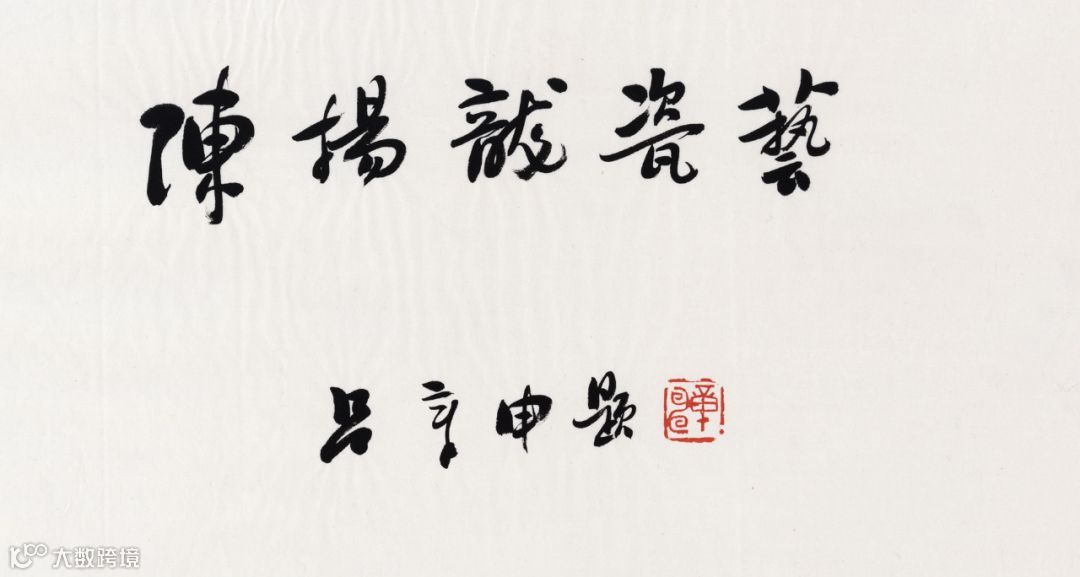 陳揚龍瓷藝
吕章申題
大数跨境